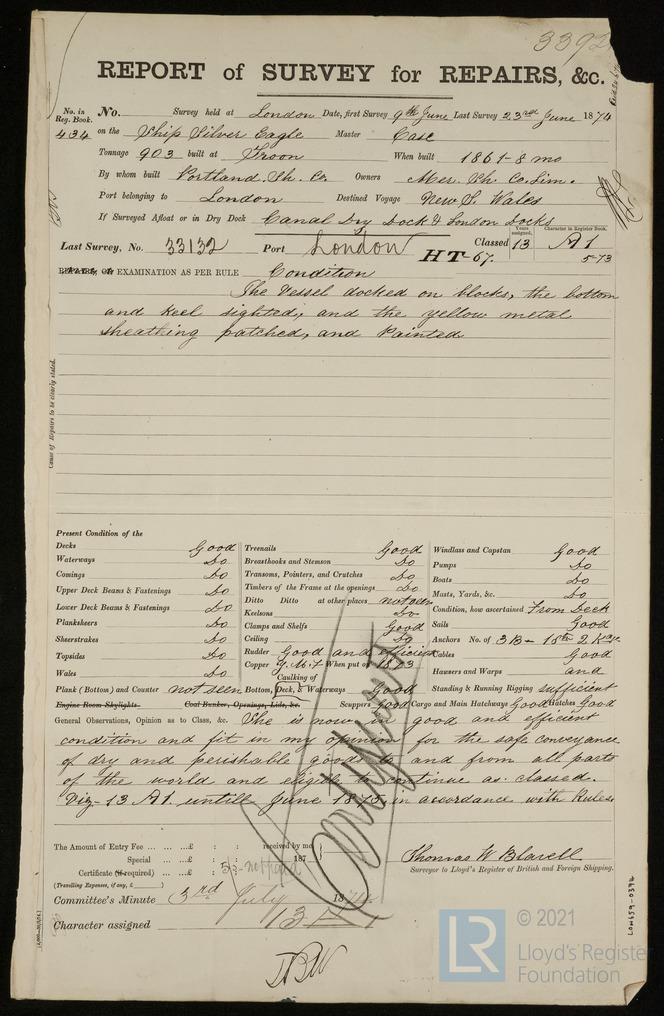 3392
REPORT of SURVEY for REPAIRS, &c.
No. in Reg. Book. No. Survey held at London Date, first Survey 9th June Last Survey 23rd June 1874
434 on the Ship Silver Eagle Master Case
Tonnage 903 built at Troon When built 1861-8 mo
By whom built Portland Sh. Co. Owners Mer. Sh. Co. Lim.
Port belonging to London Destined Voyage New S. Wales
If Surveyed Afloat or in Dry Dock Canal Dry Dock & London Docks
Last Survey, No. 33132 Port London Classed Years assigned, 13 Character in Register Book. A1
HT-67. 5-73
EXAMINATION AS PER RULE Condition
The Vessel docked on blocks, the bottom
and keel sighted, and the yellow metal
sheathing patched, and Painted
Cause of Repairs to be clearly stated.
Present Condition of the
Decks Good
Waterways Do
Comings Do
Upper Deck Beams & Fastenings Do
Lower Deck Beams & Fastenings Do
Planksheers Do
Sheerstrakes Do
Topsides Do
Wales Do
Plank (Bottom) and Counter not seen
Engine Room Skylights. Coal Bunker, Openings, Lids, &c.
Treenails Good
Breasthooks and Stemson Do
Transoms, Pointers, and Crutches Do
Timbers of the Frame at the openings Do
Ditto Ditto at other places not seen
Keelsons Do
Clamps and Shelfs Good
Ceiling Do
Rudder Good and efficient
Copper Y.M.F When put on 1873
Caulking of
Bottom, Deck, & Waterways Good
Scuppers Good Cargo and Main Hatchways Good Hatches Good
Windlass and Capstan Good
Pumps Do
Boats Do
Masts, Yards, &c. Do
Condition, how ascertained From Deck
Sails Good
Anchors No. of 3B- 1St 2 Kge.
Cables Good
Hawsers and Warps and
Standing & Running Rigging sufficient
General Observations, Opinion as to Class, &c. She is now in good and efficient
condition and fit in my opinion for the safe conveyance
of dry and perishable goods to and from all parts
of the world and eligible to continue as classed.
Viz- 13 A1. untill June 1875, in accordance with Rules
Continued
The Amount of Entry Fee ... ... £ : : received by me
Special ... ... £ : : 187
Certificate (if required) ... £ 5/- not paid
(Travelling Expenses, if any, £ )
Thomas W Blavell
Surveyor to Lloyd's Register of British and Foreign Shipping.
Committee's Minute 3rd July 1874
Character assigned 13
LON659-0394
LR
© 2021
Lloyd's Register
Foundation